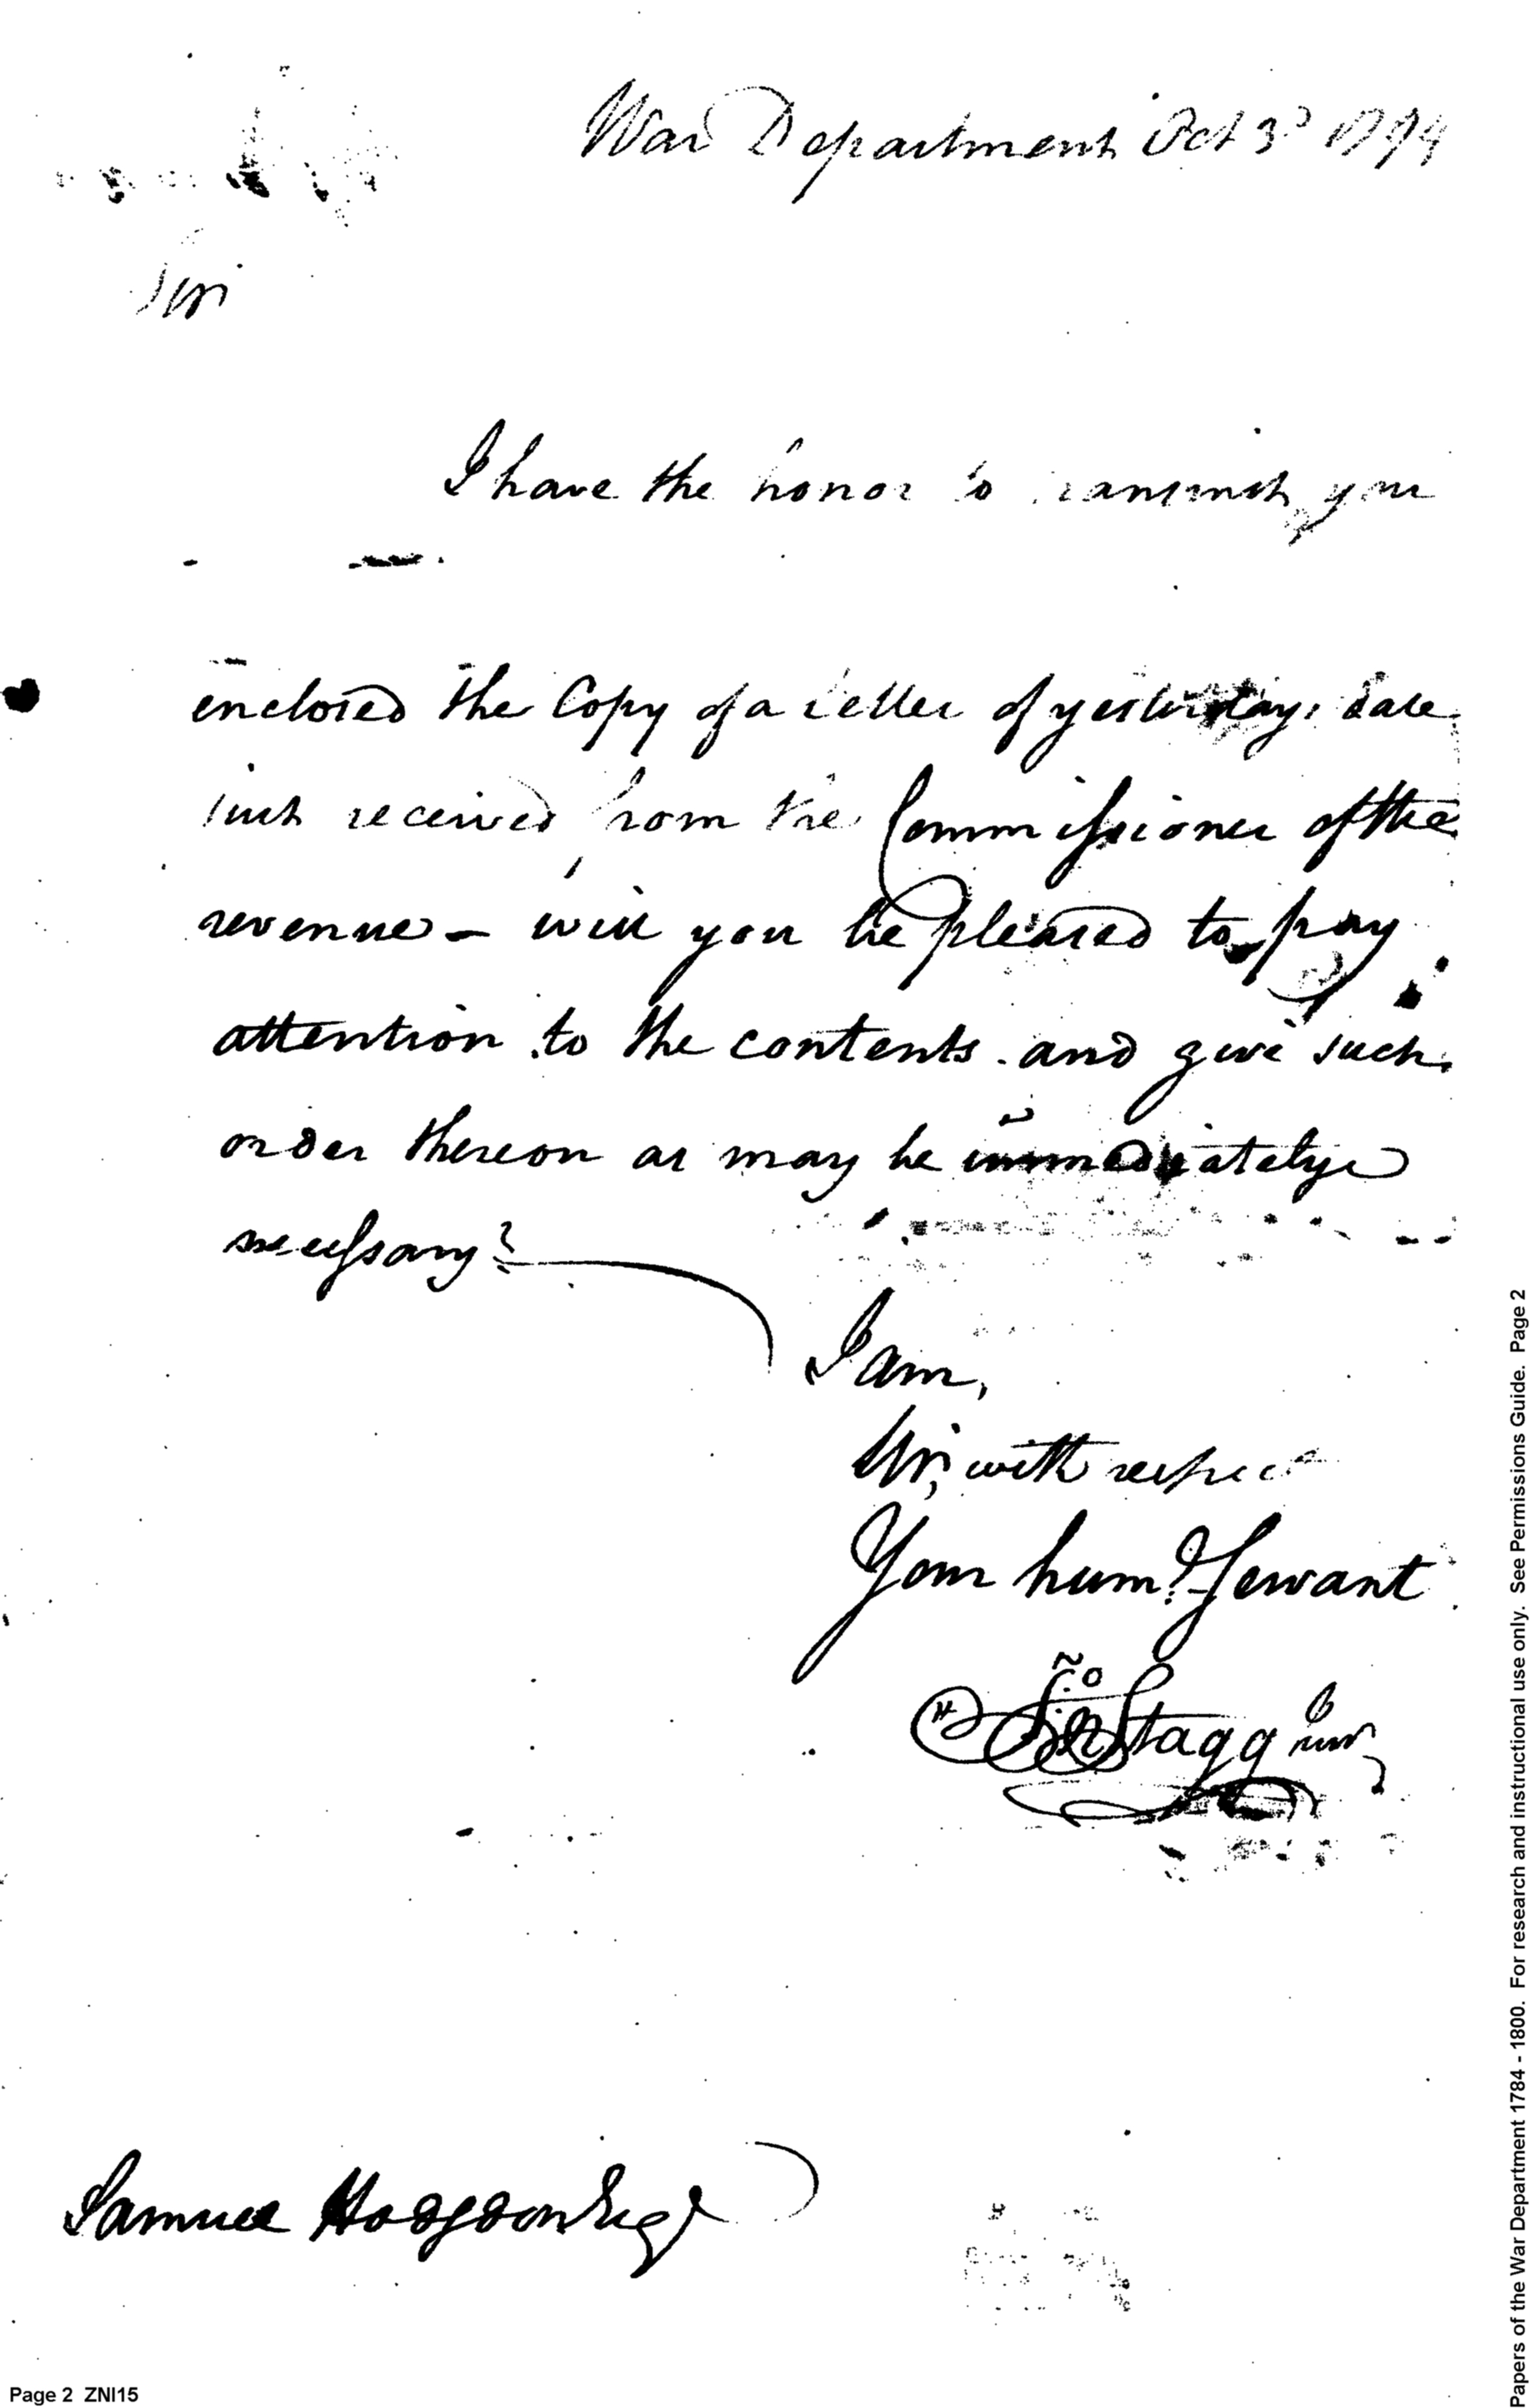 War Department Oct 3d 1794
Sir
I have the honor to transmit you
enclosed the Copy of a letter of yesterdays date
just received from the Commissioner of the
revenue – will you be pleased to pay
attention to the contents and give such
order thereon as may be immediately
necessary?
I am,
Sir, with respect
Your humbl Servant
Jno Stagg Junr
Samuel Hodgdon Esqr
Page 2 ZNI15
Papers of the War Department 1784 - 1800. For research and instructional use only. See Permissions Guide. Page 2